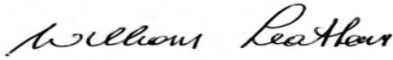 William Leathan